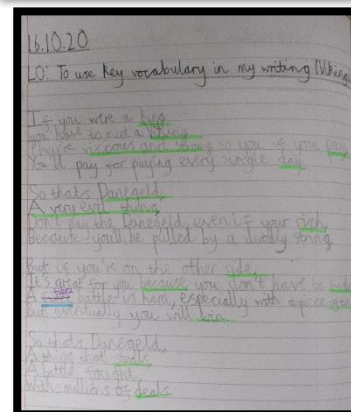 16.10.20
LO: To use key vocabulary in my writing (Viking
If you were a king
you have to meet a Viking
They're vicious and strong so you if you pay
You'll pay for paying every single day
So thats Danegeld,
A very evil thing,
Don't pay the Danegeld, even if your
Because you'll be pulled by a deadly string
But if you're on the other side,
It's great for you because you don't have to
A battle is hard, especially with a piece
But eventually you will win
So thats Danegeld,
A thing that
A battle fought,
With millions of deals